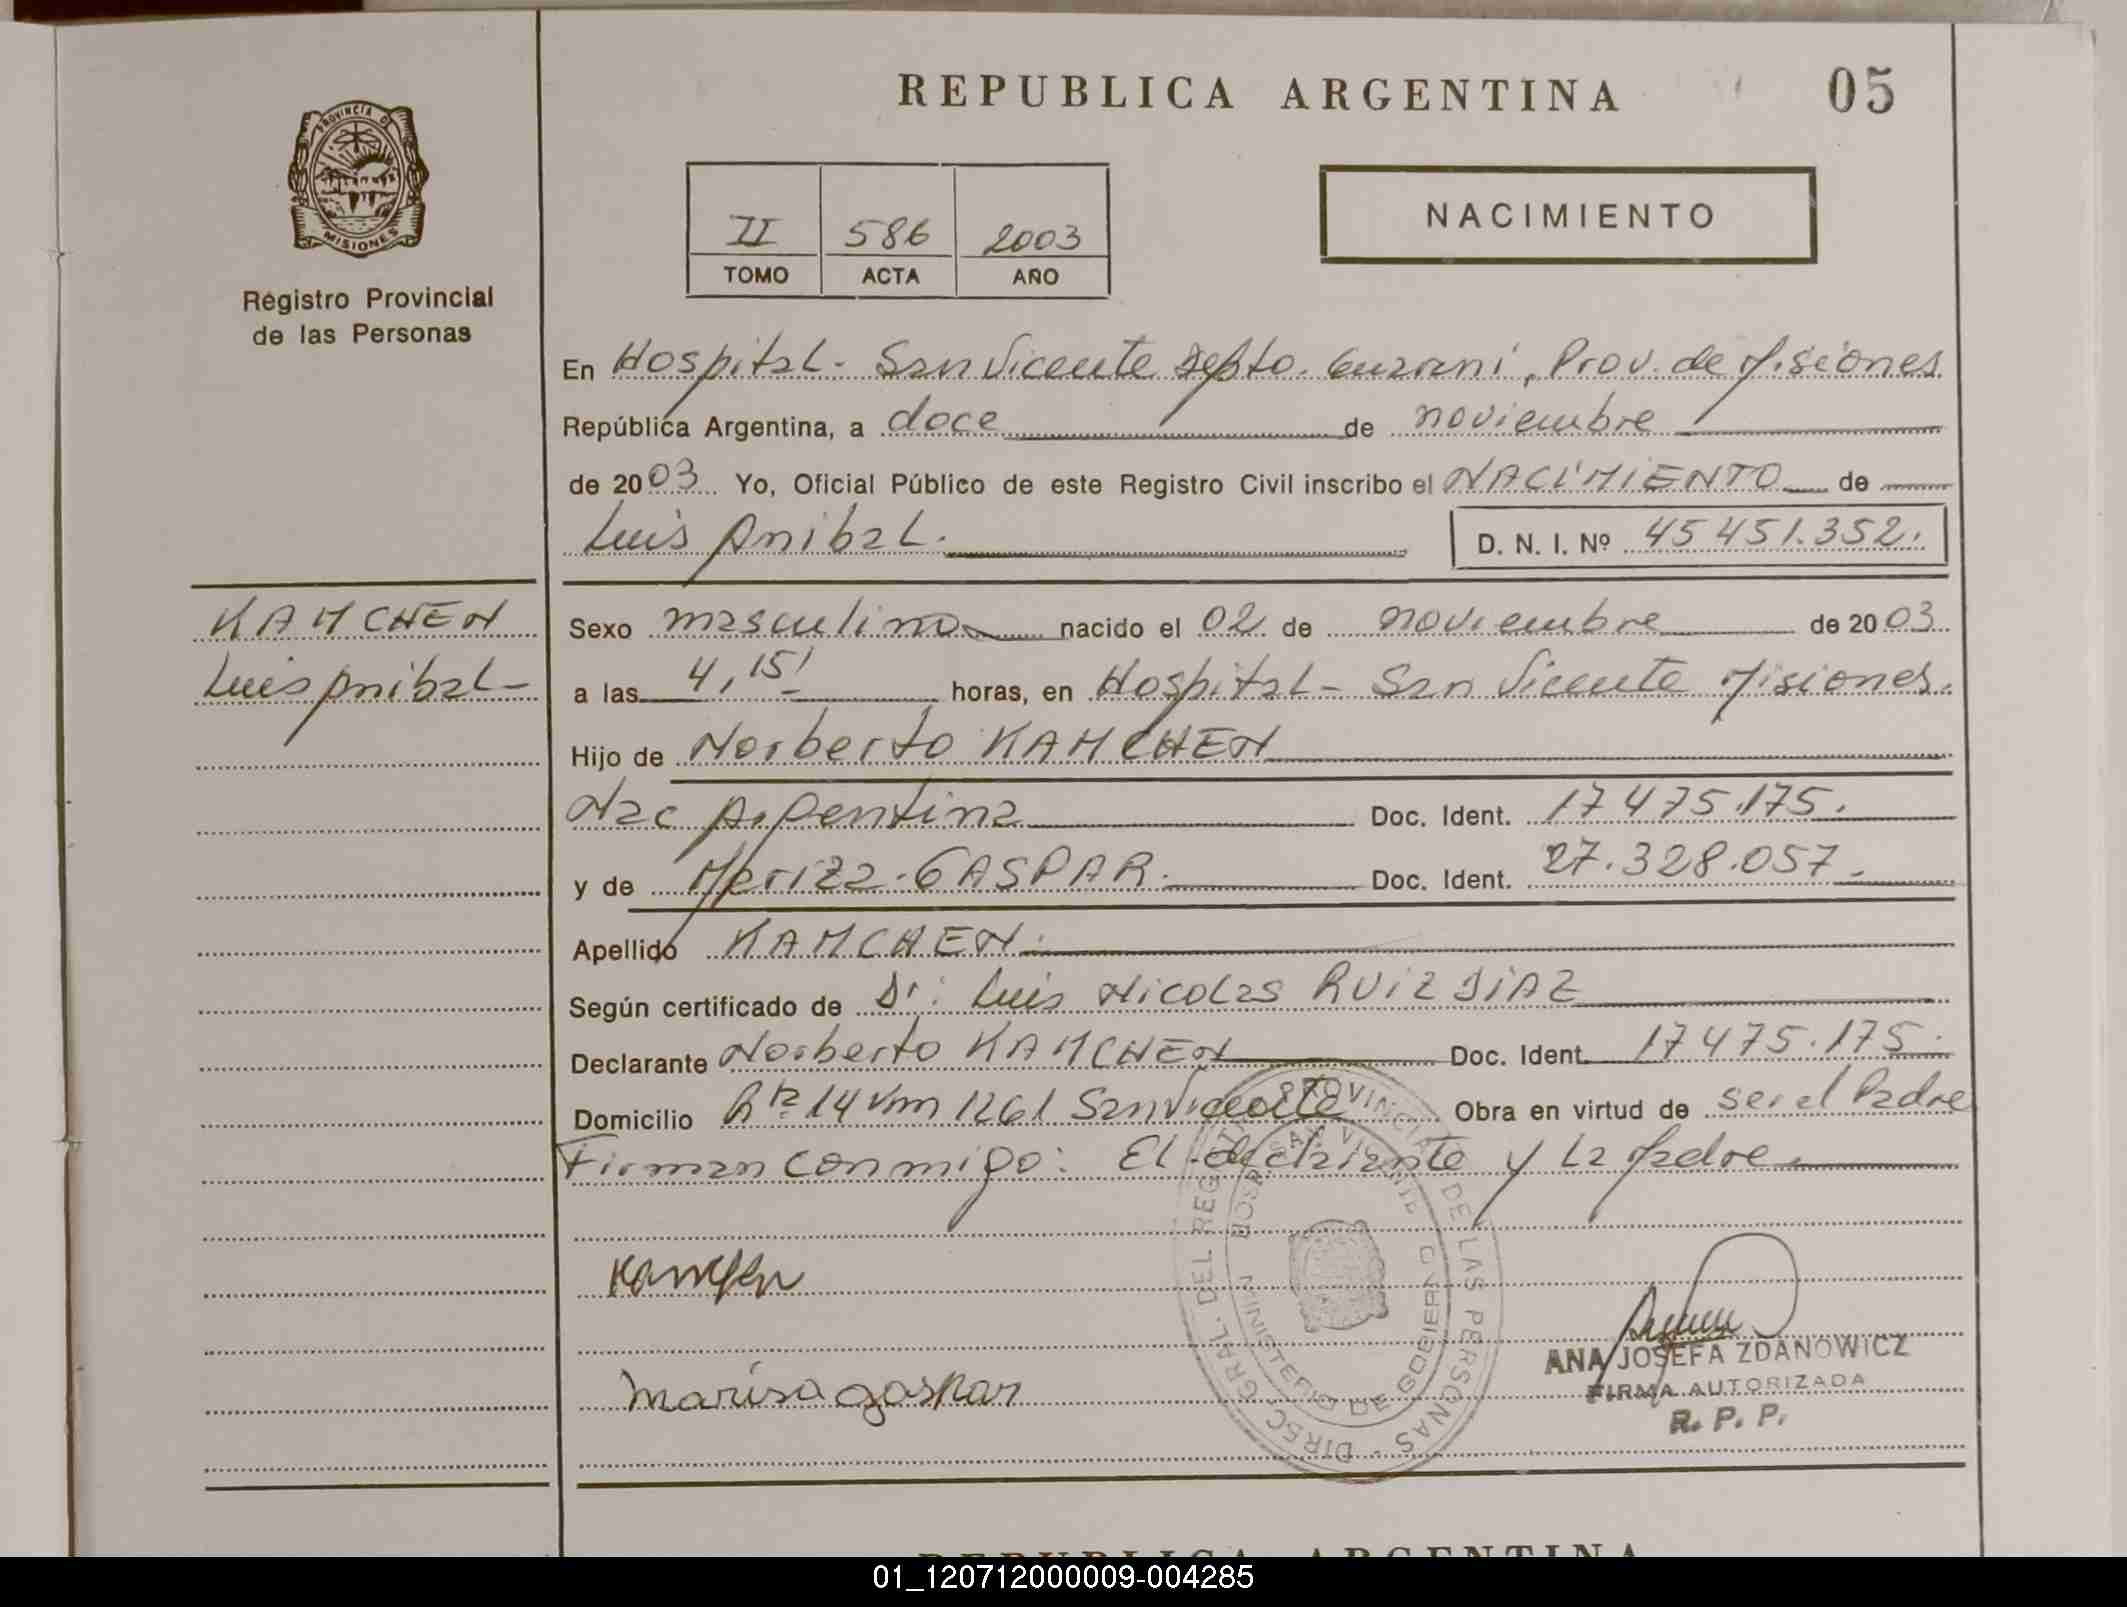 REPUBLICA ARGENTINA
05
PROVINCIA D
MISIONES
Registro Provincial
de las Personas
II 586 2003
TOMO ACTA AÑO
NACIMIENTO
En Hospital - San Vicente Depto. Guarani, Prov. de Misiones
República Argentina, a doce de noviembre
de 2003 Yo, Oficial Público de este Registro Civil inscribo el NACIMIENTO de
Luis Anibal.
D. N. I. Nº 45 451.352.
KAMCHEN
Luis Anibal -
Sexo masculino nacido el 02 de noviembre de 2003
a las 4,15' horas, en Hospital - San Vicente Misiones.
Hijo de Norberto KAMCHEN
Nac Argentina Doc. Ident. 17 475.175.
y de Mariza GASPAR. Doc. Ident. 27.328.057.
Apellido KAMCHEN.
Según certificado de Dr: Luis Nicolas RUIZ DIAZ
Declarante Norberto KAMCHEN Doc. Ident. 17 475.175.
Domicilio Rta 14 km 1261 San Vicente Obra en virtud de ser el Padre
Firman conmigo: El declarante y La Madre
DIREC. GRAL. DEL REG PROVINCIAL DE LAS PERSONAS
SAN VICENTE
MINISTERIO DE GOBIERNO
marisa gaspar
ANA JOSEFA ZDANOWICZ
FIRMA AUTORIZADA
R. P. P.
REPUBLICA ARGENTINA
01_120712000009-004285